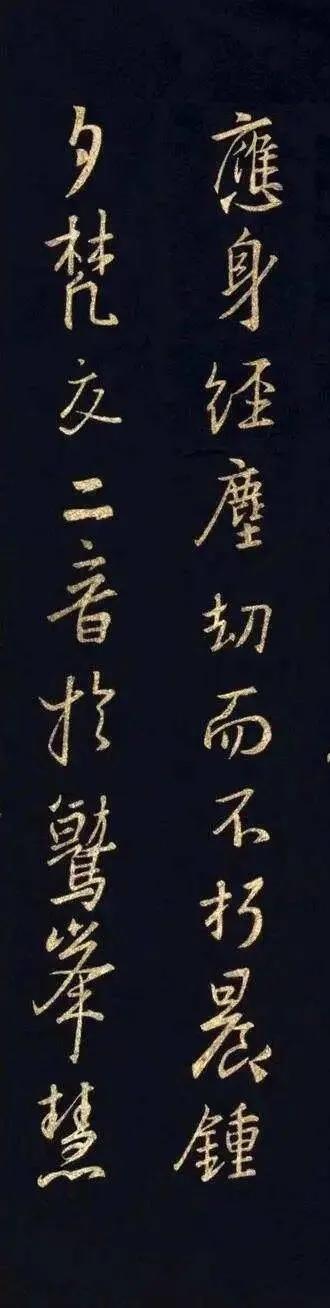 應身經塵劫而不朽晨鍾
夕梵交二音於鷲峯慧